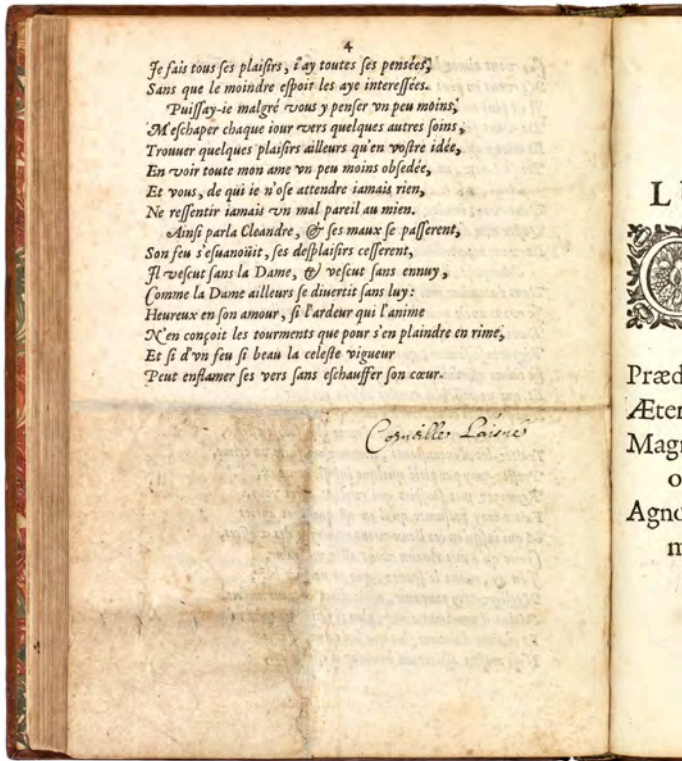 4
Je fais tous ſes plaiſirs, i'ay toutes ſes pensées,
Sans que le moindre eſpoir les aye intereſſées.
Puiſſay-ie malgré vous y penſer vn peu moins,
M'eſchaper chaque iour vers quelques autres ſoins,
Trouuer quelques plaiſirs ailleurs qu'en voſtre idée,
En voir toute mon ame vn peu moins obſedée,
Et vous, de qui ie n'oſe attendre iamais rien,
Ne reſſentir iamais vn mal pareil au mien.
Ainſi parla Cleandre, & ſes maux ſe paſſerent,
Son feu s'eſuanoüit, ſes deſplaiſirs ceſſerent,
Il veſcut ſans la Dame, & veſcut ſans ennuy,
Comme la Dame ailleurs ſe diuertit ſans luy:
Heureux en ſon amour, ſi l'ardeur qui l'anime
N'en conçoit les tourments que pour s'en plaindre en rime,
Et ſi d'vn feu ſi beau la celeſte vigueur
Peut enflamer ſes vers ſans eſchauffer ſon cœur.
Corneille Laisné
L
Præd
Æter
Magn
o
Agno
m